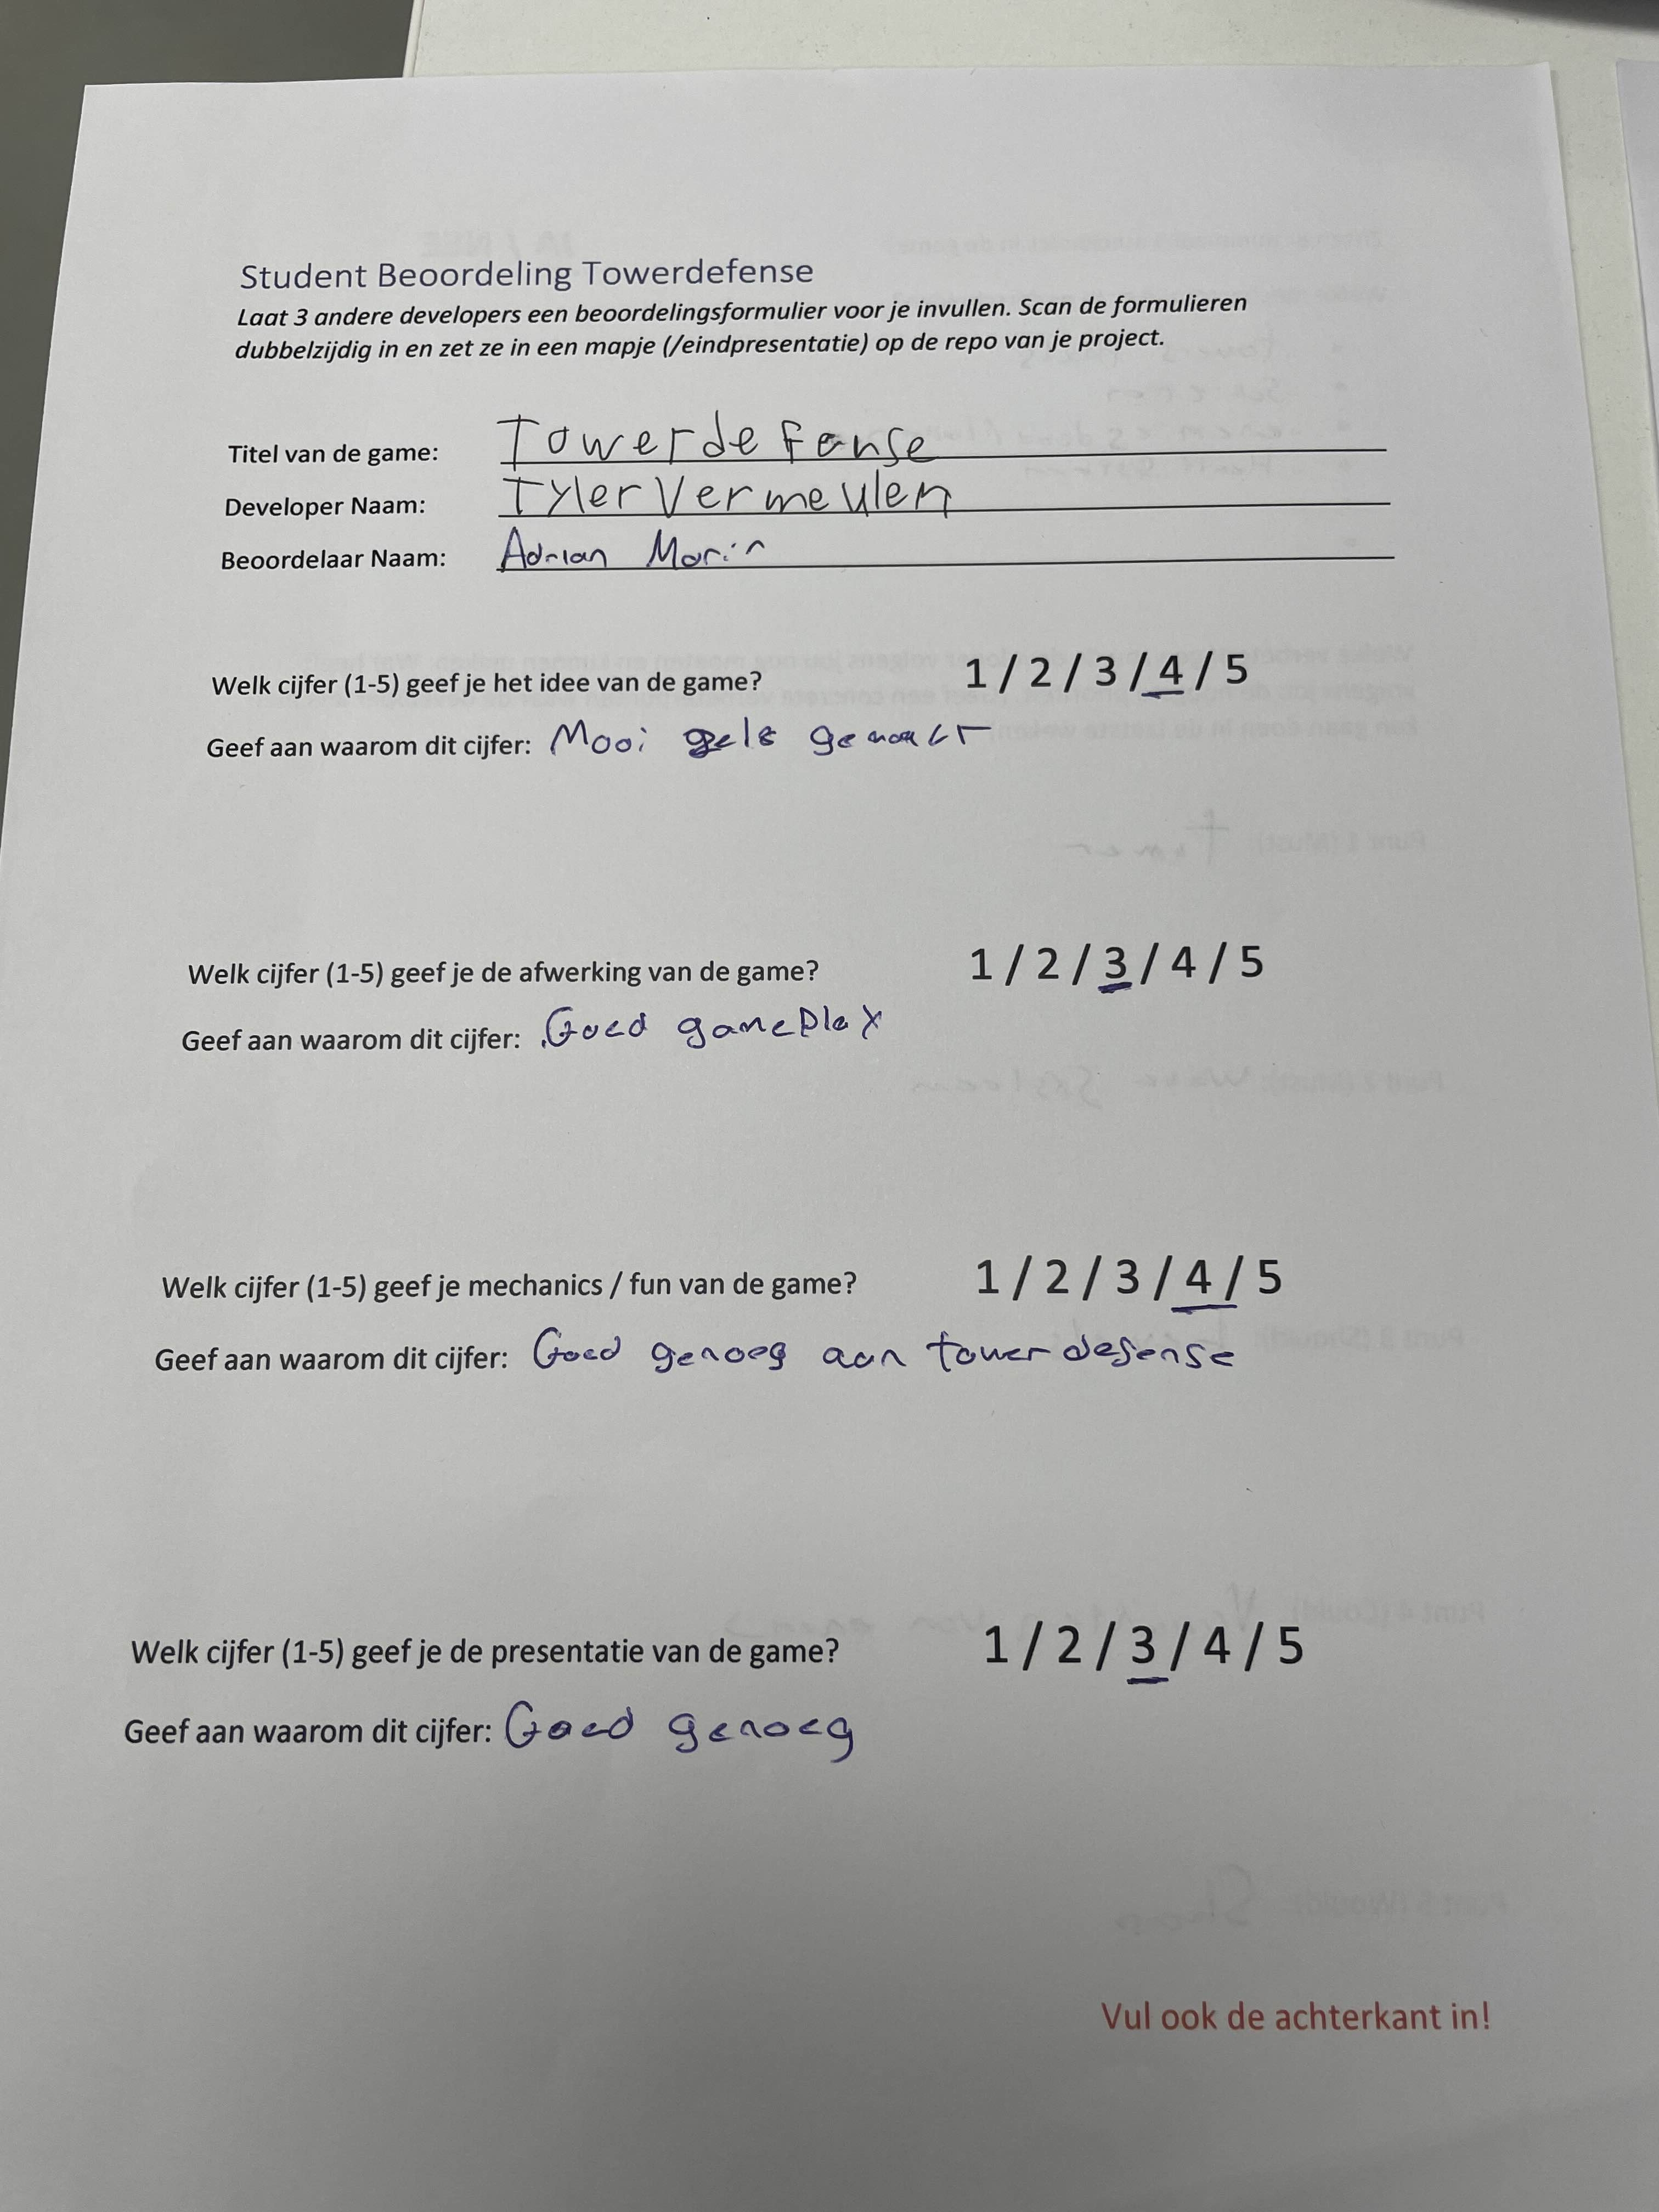 Student Beoordeling Towerdefense
Laat 3 andere developers een beoordelingsformulier voor je invullen. Scan de formulieren
dubbelzijdig in en zet ze in een mapje (/eindpresentatie) op de repo van je project.
Titel van de game: Towerdefense
Developer Naam: Tyler Vermeulen
Beoordelaar Naam: Adrian Marin
Welk cijfer (1-5) geef je het idee van de game? 1 / 2 / 3 / 4 / 5
Geef aan waarom dit cijfer: Mooi
Welk cijfer (1-5) geef je de afwerking van de game? 1 / 2 / 3 / 4 / 5
Geef aan waarom dit cijfer: Goed gameplay
Welk cijfer (1-5) geef je mechanics / fun van de game? 1 / 2 / 3 / 4 / 5
Geef aan waarom dit cijfer: Goed genoeg aan towerdefense
Welk cijfer (1-5) geef je de presentatie van de game? 1 / 2 / 3 / 4 / 5
Geef aan waarom dit cijfer: Goed genoeg
Vul ook de achterkant in!